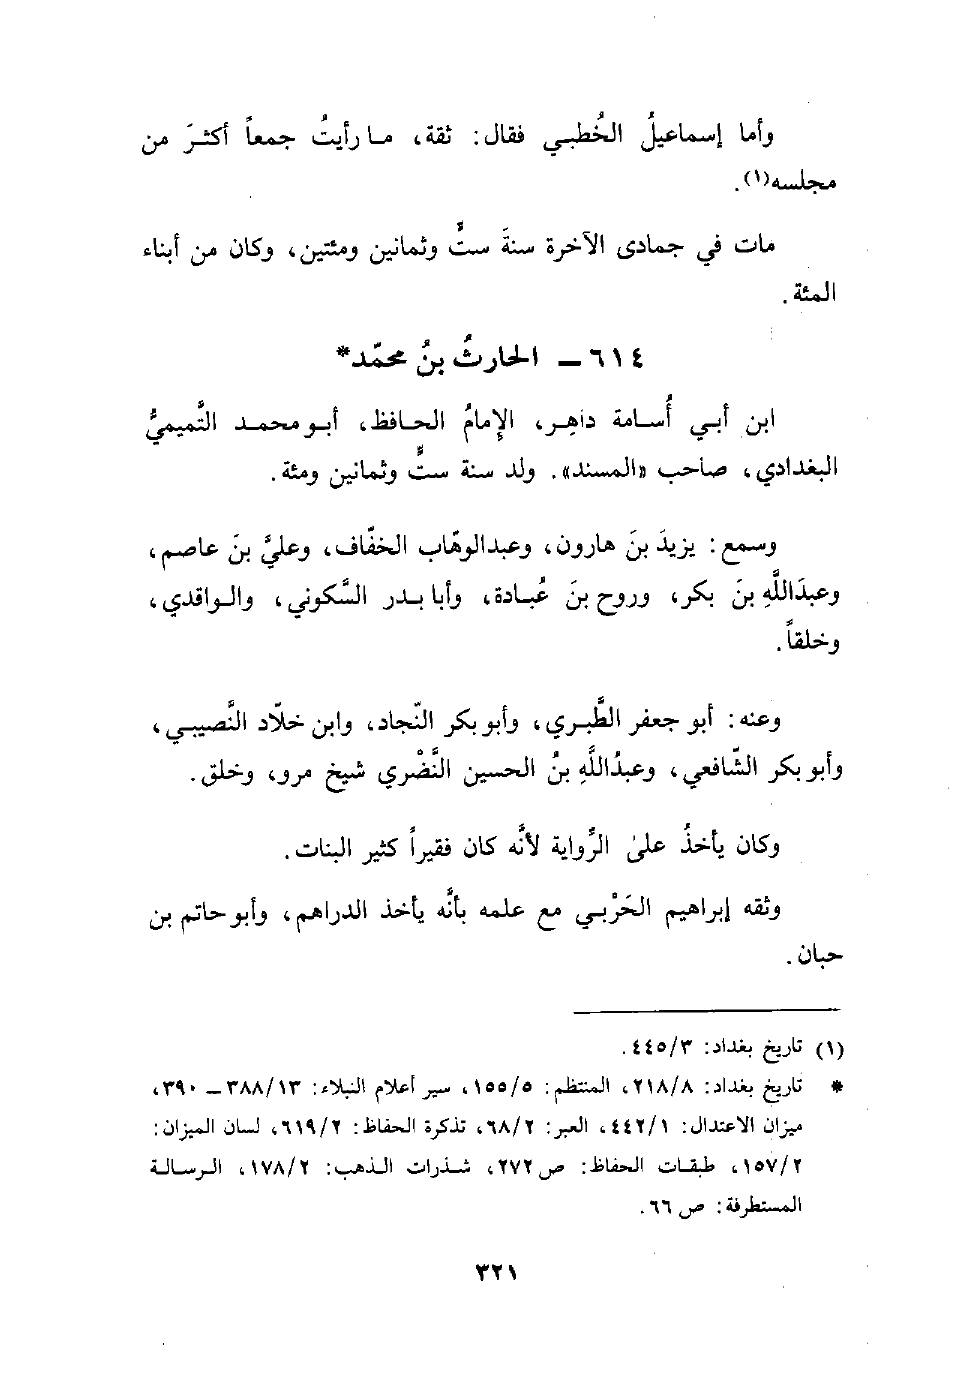 وأما إسماعيلُ الخُطبي فقال: ثقة، ما رأيتُ جمعاً أكثرَ من
مجلسه(١).
مات في جمادى الآخرة سنةَ ستٍّ وثمانين ومئتين، وكان من أبناء
المئة.
٦١٤ ــ الحارثُ بنُ محمّد*
ابن أبي أُسامة داهِر، الإِمامُ الحافظ، أبو محمد التَّميميُّ
البغدادي، صاحب «المسند». ولد سنة ستٍّ وثمانين ومئة.
وسمع: يزيدَ بنَ هارون، وعبدالوهّاب الخفّاف، وعليَّ بنَ عاصم،
وعبدَاللَّهِ بنَ بكر، وروح بنَ عُبادة، وأبا بدر السَّكوني، والواقدي،
وخلقاً.
وعنه: أبو جعفر الطَّبري، وأبو بكر النّجاد، وابن خلّاد النَّصيبي،
وأبو بكر الشّافعي، وعبدُاللَّهِ بنُ الحسين النَّضْري شيخ مرو، وخلق.
وكان يأخذُ علىٰ الرِّواية لأنَّه كان فقيراً كثير البنات.
وثقه إبراهيم الحَرْبي مع علمه بأنَّه يأخذ الدراهم، وأبو حاتم بن
حبان.
(١) تاريخ بغداد: ٤٤٥/٣.
* تاريخ بغداد: ٢١٨/٨، المنتظم: ١٥٥/٥، سير أعلام النبلاء: ٣٨٨/١٣ ــ ٣٩٠،
ميزان الاعتدال: ٤٤٢/١، العبر: ٦٨/٢، تذكرة الحفاظ: ٦١٩/٢، لسان الميزان:
١٥٧/٢، طبقات الحفاظ: ص ٢٧٢، شذرات الذهب: ١٧٨/٢، الرسالة
المستطرفة: ص ٦٦.
٣٢١